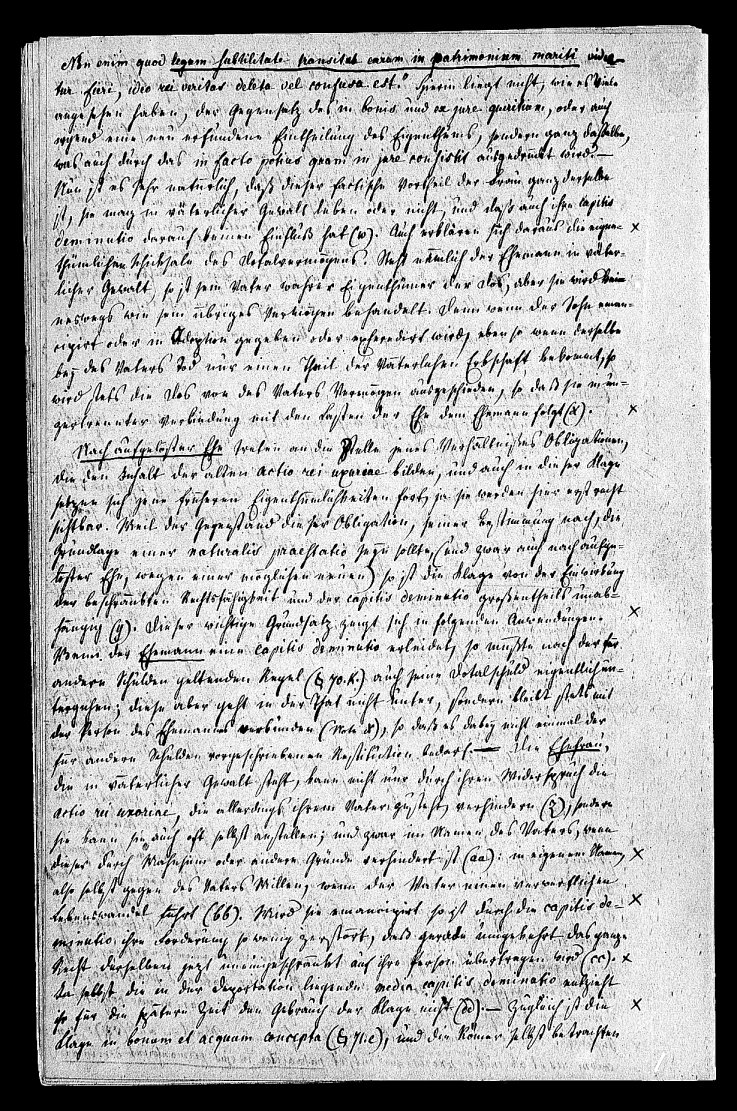 Non enim quod legum subtilitate transitus earum in patrimonium mariti vide-
tur fieri, ideo rei veritas deleta vel confusa est." Hierin liegt nicht, wie es Viele
angesehen haben, der Gegensatz des in bonis und ex jure quiritium, oder auch
irgend eine neu erfundene Eintheilung des Eigenthums, sondern ganz dasselbe,
was auch durch das in facto potius quam in jure consistit ausgedrückt wird. —
Nun ist es sehr natürlich, daß dieser factische Vortheil der Frau ganz derselbe
ist, sie mag in väterlicher Gewalt leben oder nicht, und daß auch ihre capitis
deminutio darauf keinen Einfluß hat (w). Auch erklären sich daraus die eigen- x
thümlichen Schicksale des Dotalvermögens. Steht nämlich der Ehemann in väter-
licher Gewalt, so ist sein Vater wahrer Eigenthümer der Dos, aber sie wird kei-
neswegs wie sein übriges Vermögen behandelt. Denn wenn der Sohn eman-
cipirt oder in Adoption gegeben oder exheredirt wird, eben so wenn derselbe
bey des Vaters Tod nur einen Theil der väterlichen Erbschaft bekommt, so
wird stets die Dos von des Vaters Vermögen ausgeschieden, so daß sie in un-
getrennter Verbindung mit den Lasten der Ehe dem Ehemann folgt (x). x
Nach aufgelöster Ehe treten an die Stelle jenes Verhältnißes Obligationen,
die den Inhalt der alten actio rei uxoriae bilden, und auch in dieser Klage
setzen sich jene früheren Eigenthümlichkeiten fort, ja sie werden hier erst recht
sichtbar. Weil der Gegenstand dieser Obligation, seiner Bestimmung nach, die
Grundlage einer naturalis praestatio seyn sollte (und zwar auch nach aufge-
löster Ehe, wegen einer möglichen neuen) so ist die Klage von der Einwirkung
der beschränkten Rechtsfähigkeit und der capitis deminutio großentheils unab-
hängig (y). Dieser wichtige Grundsatz zeigt sich in folgenden Anwendungen. x
Wenn der Ehemann eine capitis deminutio erleidet, so müßte nach der für
andere Schulden geltenden Regel (§ 70.k.) auch seine Dotalschuld eigentlich un-
tergehen; diese aber geht in der That nicht unter, sondern bleibt stets mit
der Person des Ehemannes verbunden (Note x), so daß es dabey nicht einmal der
für andere Schulden vorgeschriebenen Restitution bedarf. — Die Ehefrau,
die in väterlicher Gewalt steht, kann nicht nur durch ihren Widerspruch die
actio rei uxoriae, die allerdings ihrem Vater zusteht, verhindern (z), sondern
sie kann sie auch oft selbst anstellen; und zwar im Namen des Vaters, wenn
dieser durch Wahnsinn oder andere Gründe verhindert ist (aa): in eigenem Namen, x
also selbst gegen des Vaters Willen, wenn der Vater einen verwerflichen
Lebenswandel führt (bb). Wird sie emancipirt so ist durch die capitis de- x
minutio ihre Forderung so wenig zerstört, daß gerade umgekehrt das ganze
Recht derselben jetzt uneingeschränkt auf ihre Person übertragen wird (cc). x
Ja selbst die in der Deportation liegende media capitis deminutio entzieht
ihr für die spätere Zeit den Gebrauch der Klage nicht (dd). — Zugleich ist die x
Klage in bonum et aequum concepta (§ 71.c), und die Römer selbst betrachten